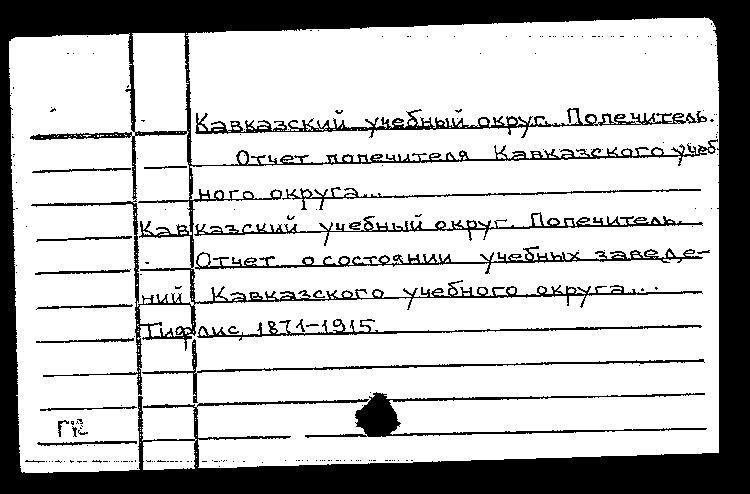 Кавказский учебный округ. Попечитель.
Отчет попечителя Кавказского учеб
ного округа...
Кавказский учебный округ. Попечитель.
Отчет о состоянии учебных заведе-
ний Кавказского учебного округа...
Тифлис, 1871-1915.